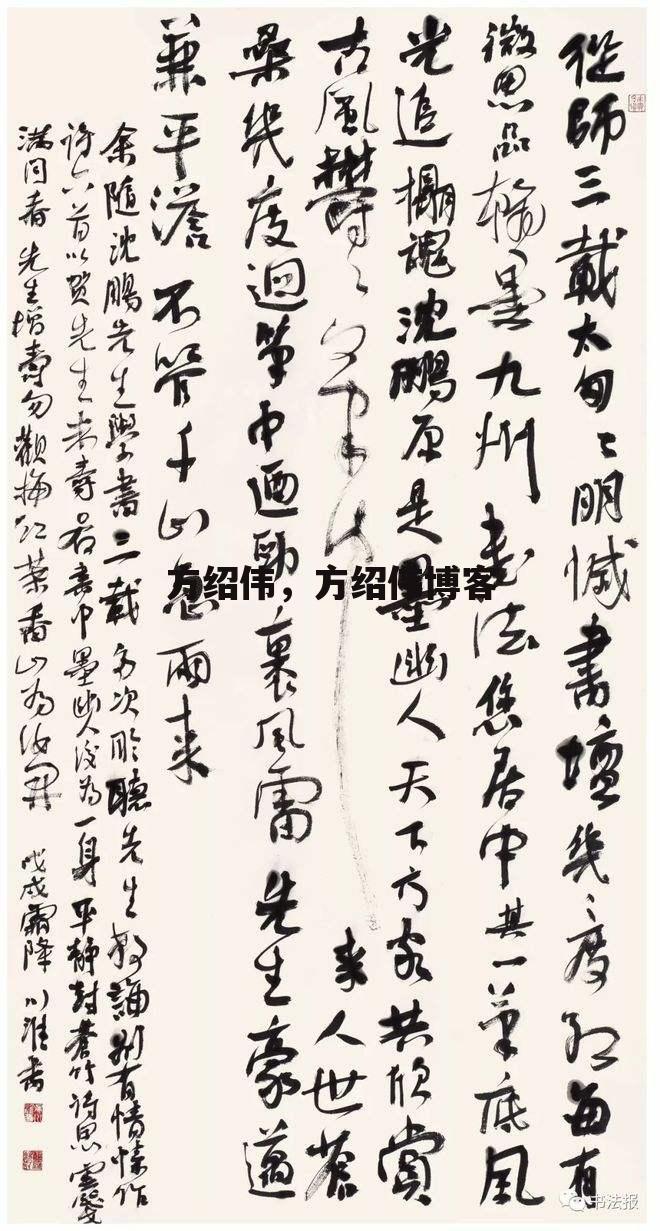 從師三載太匆匆明憾書壇幾度紅每有
微思品翰墨九州書法您居中其一筆底風
光追攝魂沈鵬原是墨幽人天下方家共欣賞
古風鬱鬱 來其二人世蒼
桑幾度迴筆中遒勁裹風雷先生豪邁
兼平澹不管千山急雨來
余隨沈鵬先生學書三載多次聆聽先生教誨別有情愫作
詩六首以賀先生 壽 墨幽人後為一身平靜對蒼竹詩思靈
滿同春先生增壽勿觀梅紅葉香山為汝開 戊戌霜降 川淮書
方绍伟，方绍伟博客
书法报